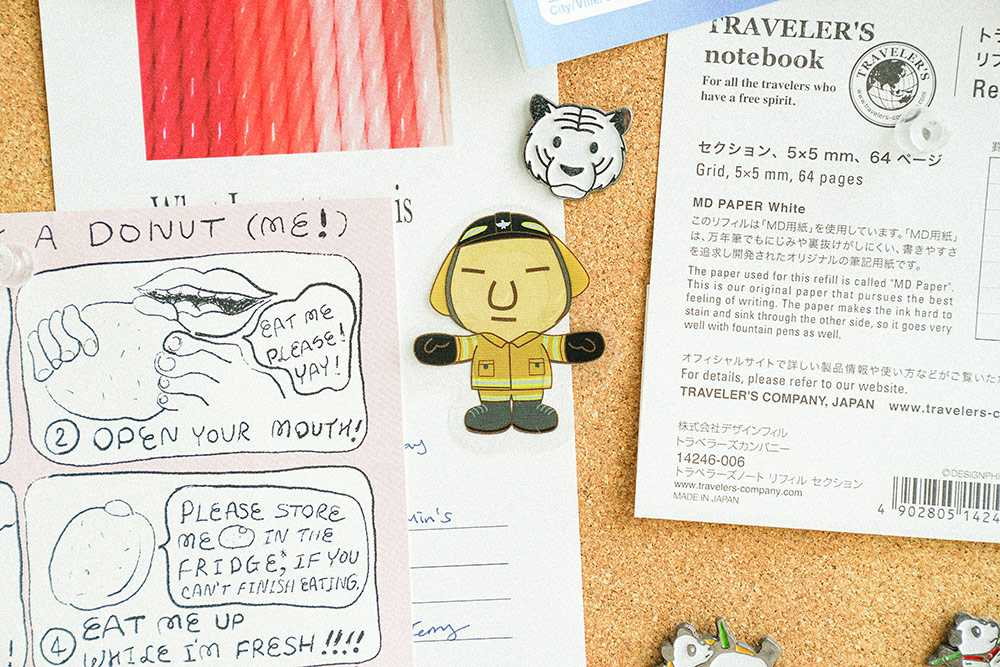 City/Ville/
TRAVELER'S
notebook
For all the travelers who
have a free spirit.
TRAVELER'S
www.travelers-company.com
トラ
リフ
Re
セクション、5×5 mm、64 ページ
Grid, 5×5 mm, 64 pages
MD PAPER White
このリフィルは「MD用紙」を使用しています。「MD用紙」
は、万年筆でもにじみや裏抜けがしにくい、書きやすさ
を追求し開発されたオリジナルの筆記用紙です。
The paper used for this refill is called "MD Paper".
This is our original paper that pursues the best
feeling of writing. The paper makes the ink hard to
stain and sink through the other side, so it goes very
well with fountain pens as well.
オフィシャルサイトで詳しい製品情報や使い方などがご覧いた
For details, please refer to our website.
TRAVELER'S COMPANY, JAPAN www.travelers-c
株式会社デザインフィル
トラベラーズカンパニー
14246-006
トラベラーズノート リフィル セクション
www.travelers-company.com
MADE IN JAPAN
©DESIGNPHI
4 902805 1424
is
A DONUT (ME!)
EAT ME
PLEASE!
YAY!
2 OPEN YOUR MOUTH!
PLEASE STORE
ME IN THE
FRIDGE*, IF YOU
CAN'T FINISH EATING.
4 EAT ME UP
WHILE I'M FRESH !!!!